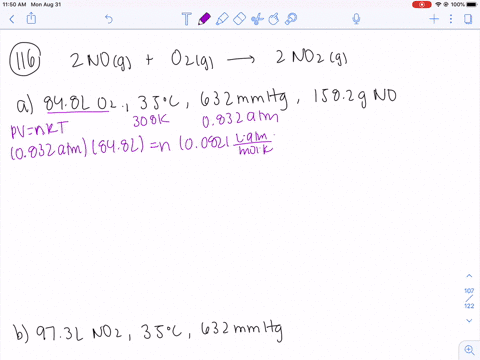 11:50 AM Mon Aug 31
100%
116 2 NO(g) + O2(g) → 2 NO2(g)
a) 84.8L O2, 35°C, 632 mmHg, 158.2g NO
PV=nRT 308K 0.832 atm
(0.832 atm)(84.8L) = n (0.0821 L·atm/mol·K
b) 97.3L NO2, 35°C, 632 mmHg
107
/
122